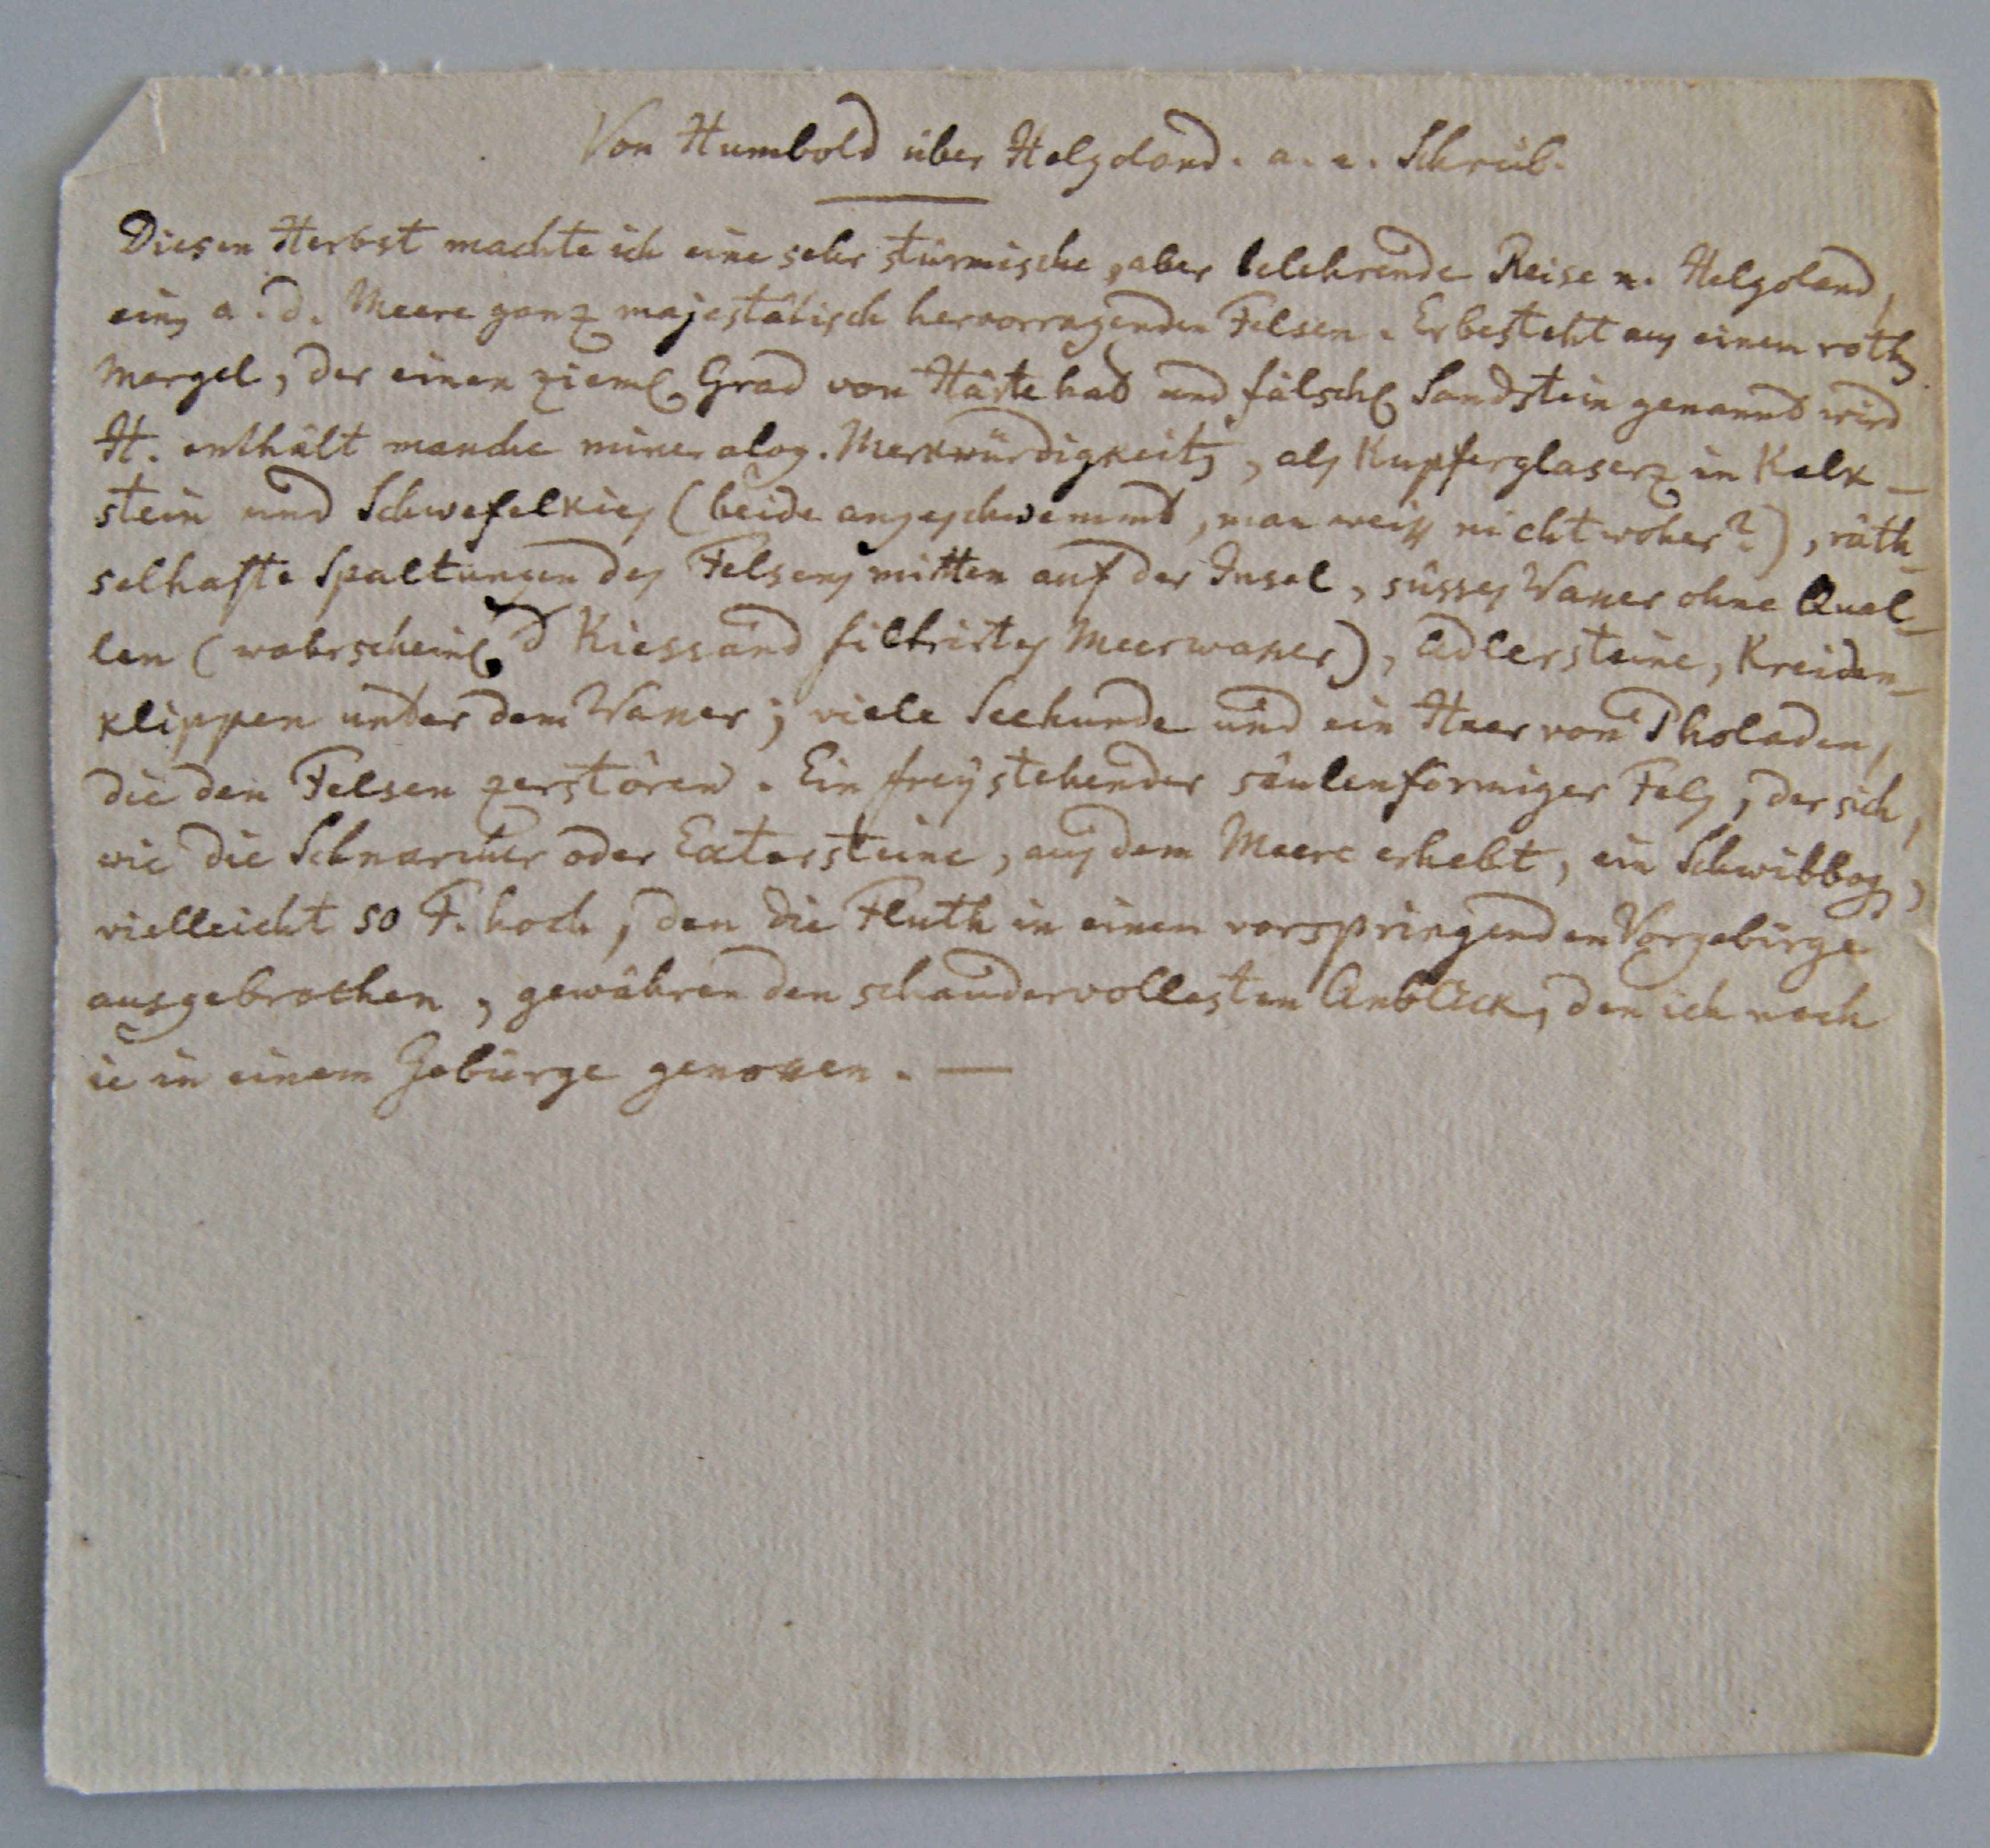 Von Humbold über Helgoland. a. e. Schreib.
Diesen Herbst machte ich eine sehr stürmische, aber belehrende Reise n. Helgoland,
ein a. d. Meere ganz majestätisch hervorragenden Felsen. Er besteht aus einem roth
Mergel, der einen zieml Grad von Härte had und fälschl Sandstein genannd wird
H. enthält manche mineralog. Merkwürdigkeit, als Kupferglaserz in Kalk-
stein und Schwefelkies (beide angeschwemmd, man weiss nicht woher?), räth-
selhafte Spaltungen des Felsens mitten auf der Insel, süsses Wasser ohne Quel-
len (wahrscheinl d Kiessand filtrirtes Meerwasser), Adlersteine, Kreiden-
klippen under dem Wasser; viele Seehunde und ein Heer von Pholaden,
die den Felsen zerstören. Ein freÿstehender säulenförmiger Fels, der sich,
wie die Schnarcher oder Extersteine, aus dem Meere erhebt, ein Schwibbog,
vielleicht 50 F. hoch, den die Fluth in einem vorspringenden Vorgebürge
ausgebrochen, gewähren den schaudervollesten Anblick, den ich noch
ie in einem Gebürge genossen. —